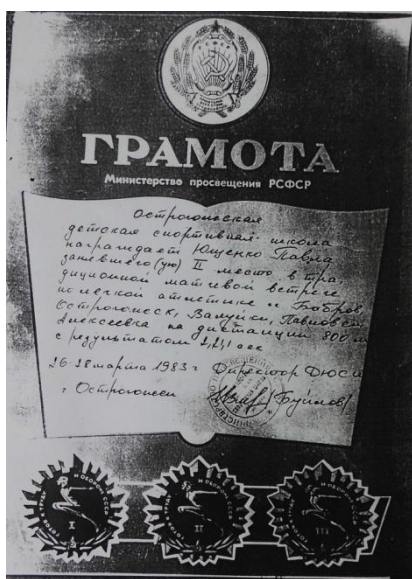 ГРАМОТА
Министерство просвещения РСФСР
Острогожская
детская спортивная школа
награждает Ющенко Павла
занявшего (ую) II место в тра-
диционной матчевой встрече
по легкой атлетике г. Бобров,
Острогожск, Валуйки, Павловск
Алексеевка на дистанции 800 м
с результатом 2,2,1 сек
26-28 марта 1983 г Директор ДЮСШ
г Острогожск (Буйлов)
I
II
III